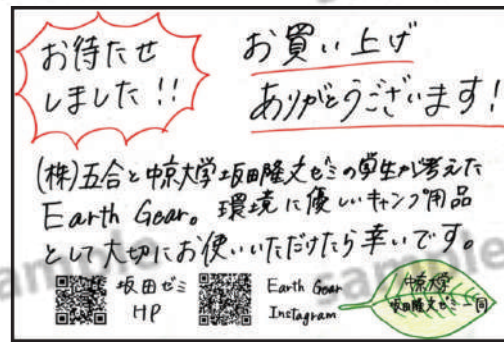 お待たせ
しました!!
お買い上げ
ありがとうございます!
(株)五合と中京大学坂田隆文ゼミの学生が考えた
Earth Gear。環境に優しいキャンプ用品
として大切にお使いいただけたら幸いです。
坂田ゼミ
HP
Earth Gear
Instagram
中京大学
坂田隆文ゼミ一同
sample
sample